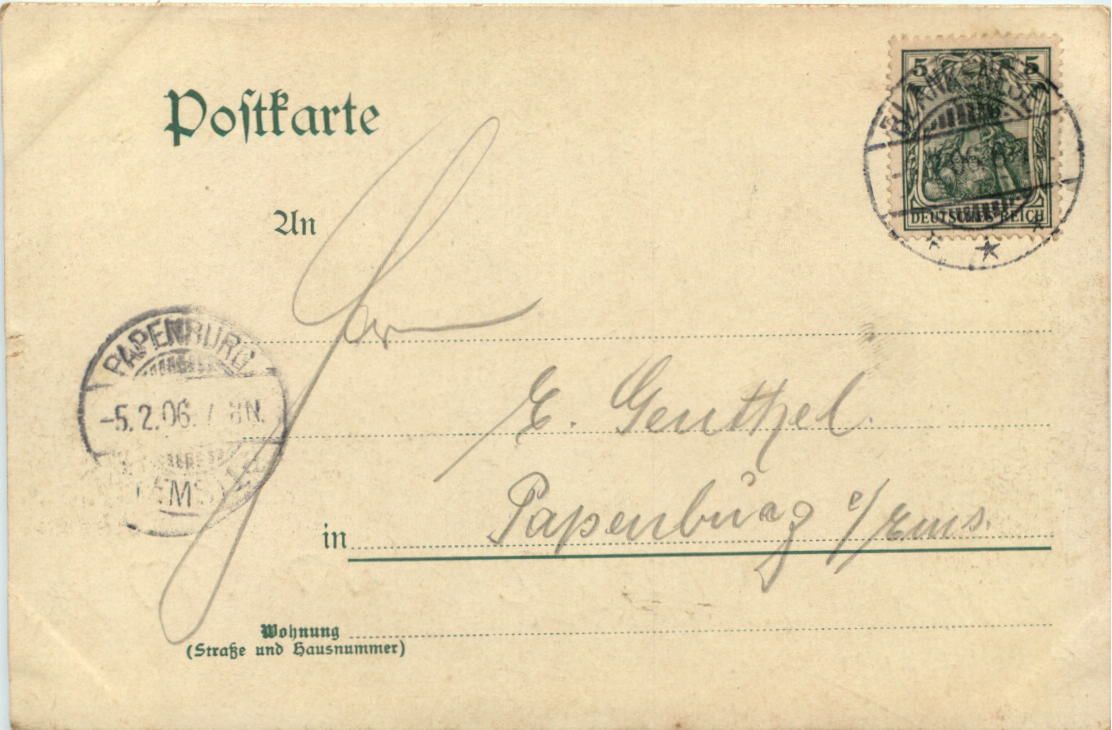 Postkarte
5 5
DEUTSCHES REICH
An
Herrn
PAPENBURG
-5.2.06. 7-8N.
(EMS)
E. Genthel.
in Papenburg e/Ems.
Wohnung
(Straße und Hausnummer)